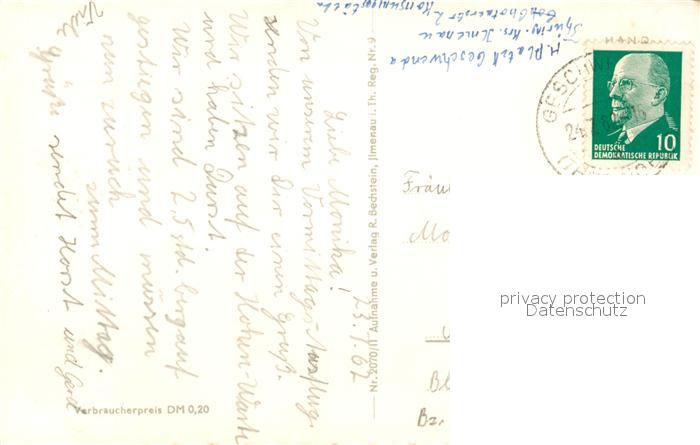 23.7.67
Liebe Monika!
Von unserem Vormittagsausflug
senden wir Dir einen Gruß.
Wir sitzen auf der Hohen-Warte
und haben Durst.
Wir sind 2,5 std. bergauf
gestiegen und müssen
nun zurück
zum Mittag.
Viele
Grüße sendet Horst und Gerd
Geschwenda
Thüring. Krs. Ilmenau
Nr. 2070/11 Aufnahme u. Verlag R. Bechstein, Jlmenau i. Th. Reg. Nr.
Verbraucherpreis DM 0,20
GESCHW
24.
10
DEUTSCHE
DEMOKRATISCHE REPUBLIK
Fräu
Mo
Bl
Bz.
privacy protection
Datenschutz